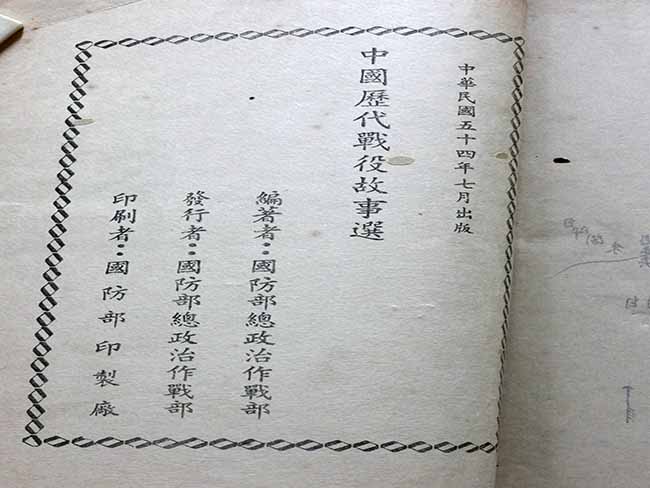 中華民國五十四年七月出版
中國歷代戰役故事選
編著者：國防部總政治作戰部
發行者：國防部總政治作戰部
印刷者：國防部印製廠